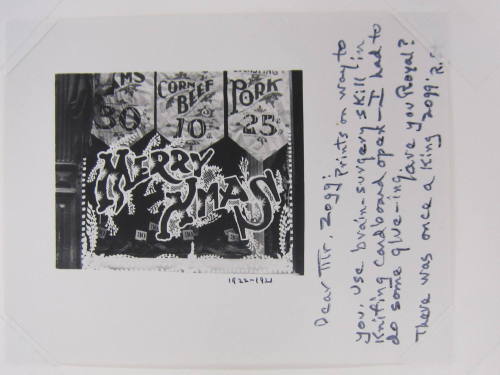 MS
30
CORNED
BEEF
10
PORK
25
MERRY
XMAS
Dear Mr. Zogg:
Prints on way to
you, use brain-surgery skill in
Knifing cardboard open—I had to
do some glue-ing
are you Royal?
There was once a King Zogg R.